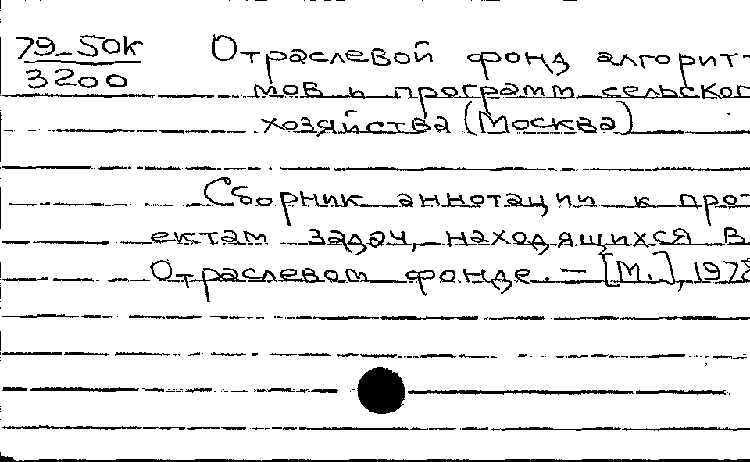 79-50к Отраслевой фонд алгорит-
3200
мов и программ сельског
хозяйства (Москва)
Сборник аннотации к про-
ектам задач, находящихся в
Отраслевом фонде. – [М.], 1978